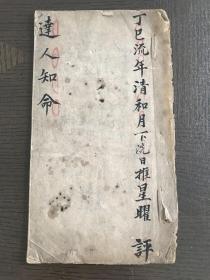 丁巳流年清和月下浣日推星曜 評
達人知命